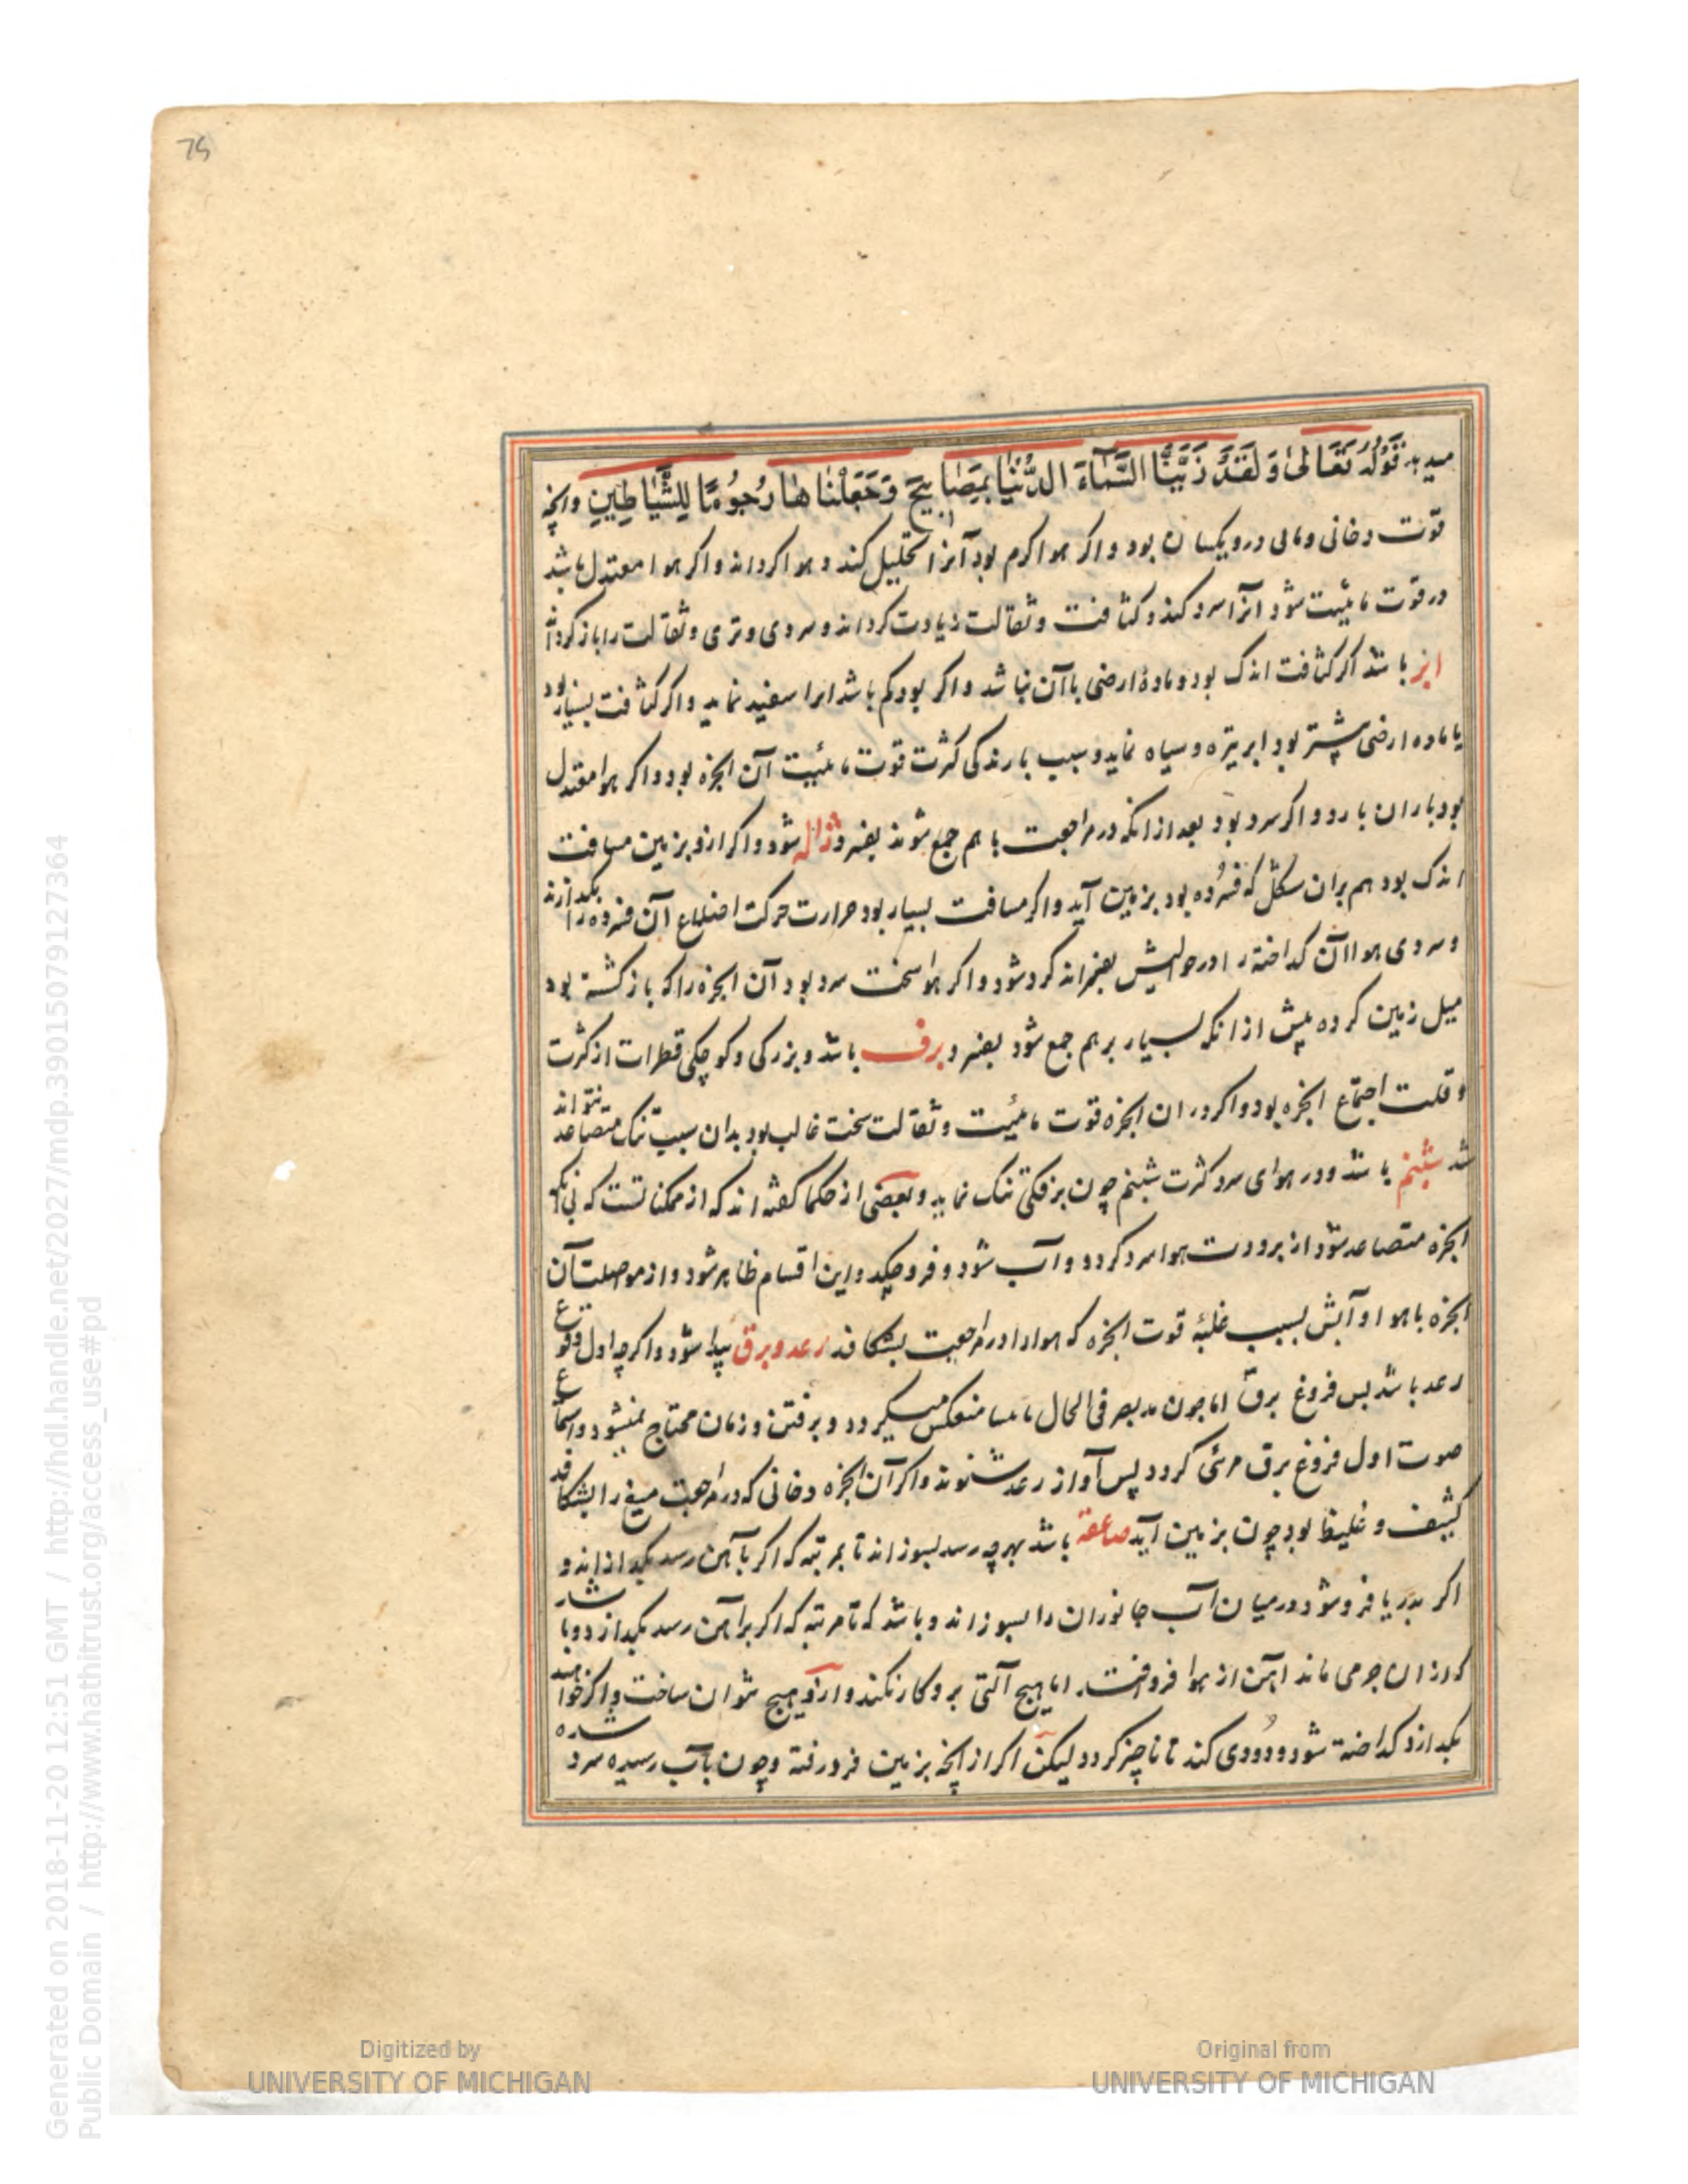 75
میدهد قَوْلُهُ تَعَالیٰ وَلَقَدْ زَیَّنَّا السَّمَآءَ الدُّنْیَا بِمَصَابِیحَ وَجَعَلْنَاهَا رُجُومًا لِلشَّیَاطِینِ وانچه
قوت دخانی و مائی درو یکسان بود و اکر هوا کرم بود آنرا تحلیل کند و هوا کرداند و اکر هوا معتدل باشد
در قوت مائیت شود آنرا سرد کند و کثافت و ثقالت زیادت کرداند و سردی و تری و ثقالت را باز کرداند
ابر باشد اکر کثافت اندک بود و مادهٔ ارضی با آن نباشد و اکر بود کم باشد ابرا سفید نماید و اکر کثافت بسیار بود
یا ماده ارضی بیشتر بود ابر تیره و سیاه نماید و سبب بارندکی کثرت قوت مائیت آن ابخره بود و اکر هوا معتدل
بود باران بارد و اکر سرد بود بعد از انکه در مراجعت با هم جمع شوند بفسرد ژاله شود و اکر ازو بزمین مسافت
اندک بود هم بران شکل که فسرده بود بزمین آید و اکر مسافت بسیار بود حرارت حرکت اضلاع آن فسرده را بکدازند
و سردی هوا آن کداخته را در حوالیش بفسراند کرد شود و اکر هوا سخت سرد بود آن ابخره را که باز کشته بود
میل زمین کرده پیش از انکه بسیار بر هم جمع شود بفسرد برف باشد و بزرکی و کوچکی قطرات از کثرت
و قلت اجتماع ابخره بود و اکر در ان ابخره قوت مائیت و ثقالت سخت غالب بود بدان سبب تنک متصاعد نتواند
شد شبنم باشد و در هوای سرد کثرت شبنم چون برفکی تنک نماید و بعضی از حکما کفته اند که از ممکناتست که بی انکه
ابخره متصاعد شود از برودت هوا سرد کردد و آب شود و فرو چکد و این اقسام ظاهر شود و از مواصلت آن
ابخره با هوا و آبش بسبب غلبهٔ قوت ابخره که هوا را در مراجعت بشکافد رعد و برق پیدا شود و اکرچه اول وقوع
رعد باشد پس فروغ برق اما چون بصر فی الحال منعکس میکردد و برفتن و زمان محتاج نمیشود و اسماع
صوت اول فروغ برق مرئی کردد پس آواز رعد شنوند و اکر آن ابخره دخانی که در مراجعت میغ را بشکافد
کثیف و غلیظ بود چون بزمین آید صاعقه باشد بهرچه رسد بسوزاند تا بمرتبه که اکر بآهن رسد بکدازاند و
اکر بدریا فرو شود در میان آب جانوران را بسوزاند و باشد که تا مرتبه که اکر بر آهن رسد بکدازد و باشد
که از ان جرمی ماند آهن از هوا فروخت اما هیچ آلتی برو کار نکند و ازو هیچ نتوان ساخت و اکر خواهند
بکدازد کداخته شود و دودی کند تا ناچیز کردد لیکن اکر از انچه بزمین فرو رفته و چون بآب رسیده سرد شده
Digitized by
UNIVERSITY OF MICHIGAN
Original from
UNIVERSITY OF MICHIGAN
Generated on 2018-11-20 12:51 GMT / http://hdl.handle.net/2027/mdp.39015079127364
Public Domain / http://www.hathitrust.org/access_use#pd